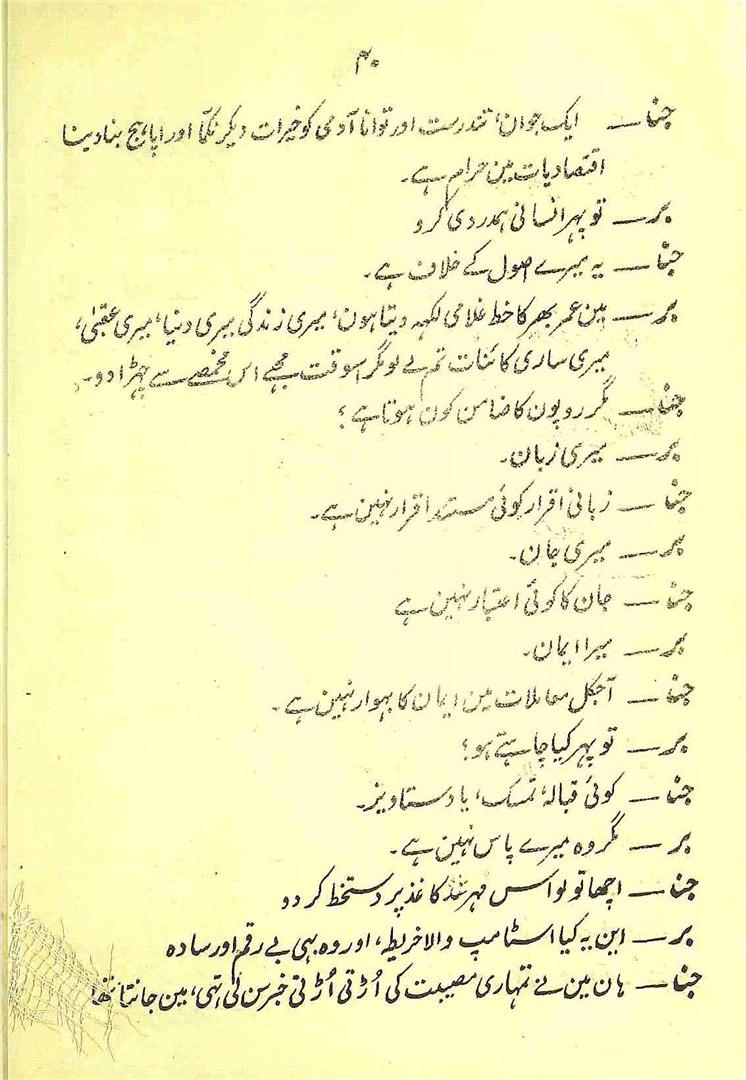 ۴۰
جنا — ایک جوان، تندرست اور توانا آدمی کو خیرات دیکر نکمّا اور اپاہج بنا دینا
اقتصادیات مین حرام ہے۔
بر — تو پہر انسانی ہمدردی کرو
جنا — یہ میرے اصول کے خلاف ہے۔
بر — مین عمر بھر کا خط غلامی لکہہ دیتا ہون، میری زندگی میری دنیا، میری عقبیٰ،
میری ساری کائنات تم لے لو مگر اسوقت مجہے اس مخمصے سے چہڑا دو۔
جنا — مگر روپون کا ضامن کون ہوتا ہے؟
بر — میری زبان۔
جنا — زبانی اقرار کوئی مستند اقرار نہین ہے۔
بر — میری جان۔
جنا — جان کا کوئی اعتبار نہین ہے
بر — میرا ایمان۔
جنا — آجکل معاملات مین ایمان کا بہوار نہین ہے۔
بر — تو پہر کیا چاہتے ہو؟
جنا — کوئی قبالہ، تمسک، یا دستاویز۔
بر — مگر وہ میرے پاس نہین ہے۔
جنا — اچھا تو لو اس مہر شدہ کاغذ پر دستخط کر دو
بر — این یہ کیا اسٹامپ والا خریطہ، اور وہ بہی بے رقم اور سادہ
جنا — ہان مین نے تمہاری مصیبت کی اُڑتی اُڑتی خبر سن لی تہی، مین جانتا تھا